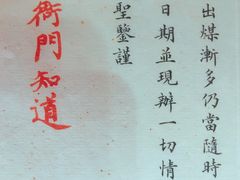 出煤漸多仍當隨時
日期並現辦一切情
聖鑒謹
衙門知道